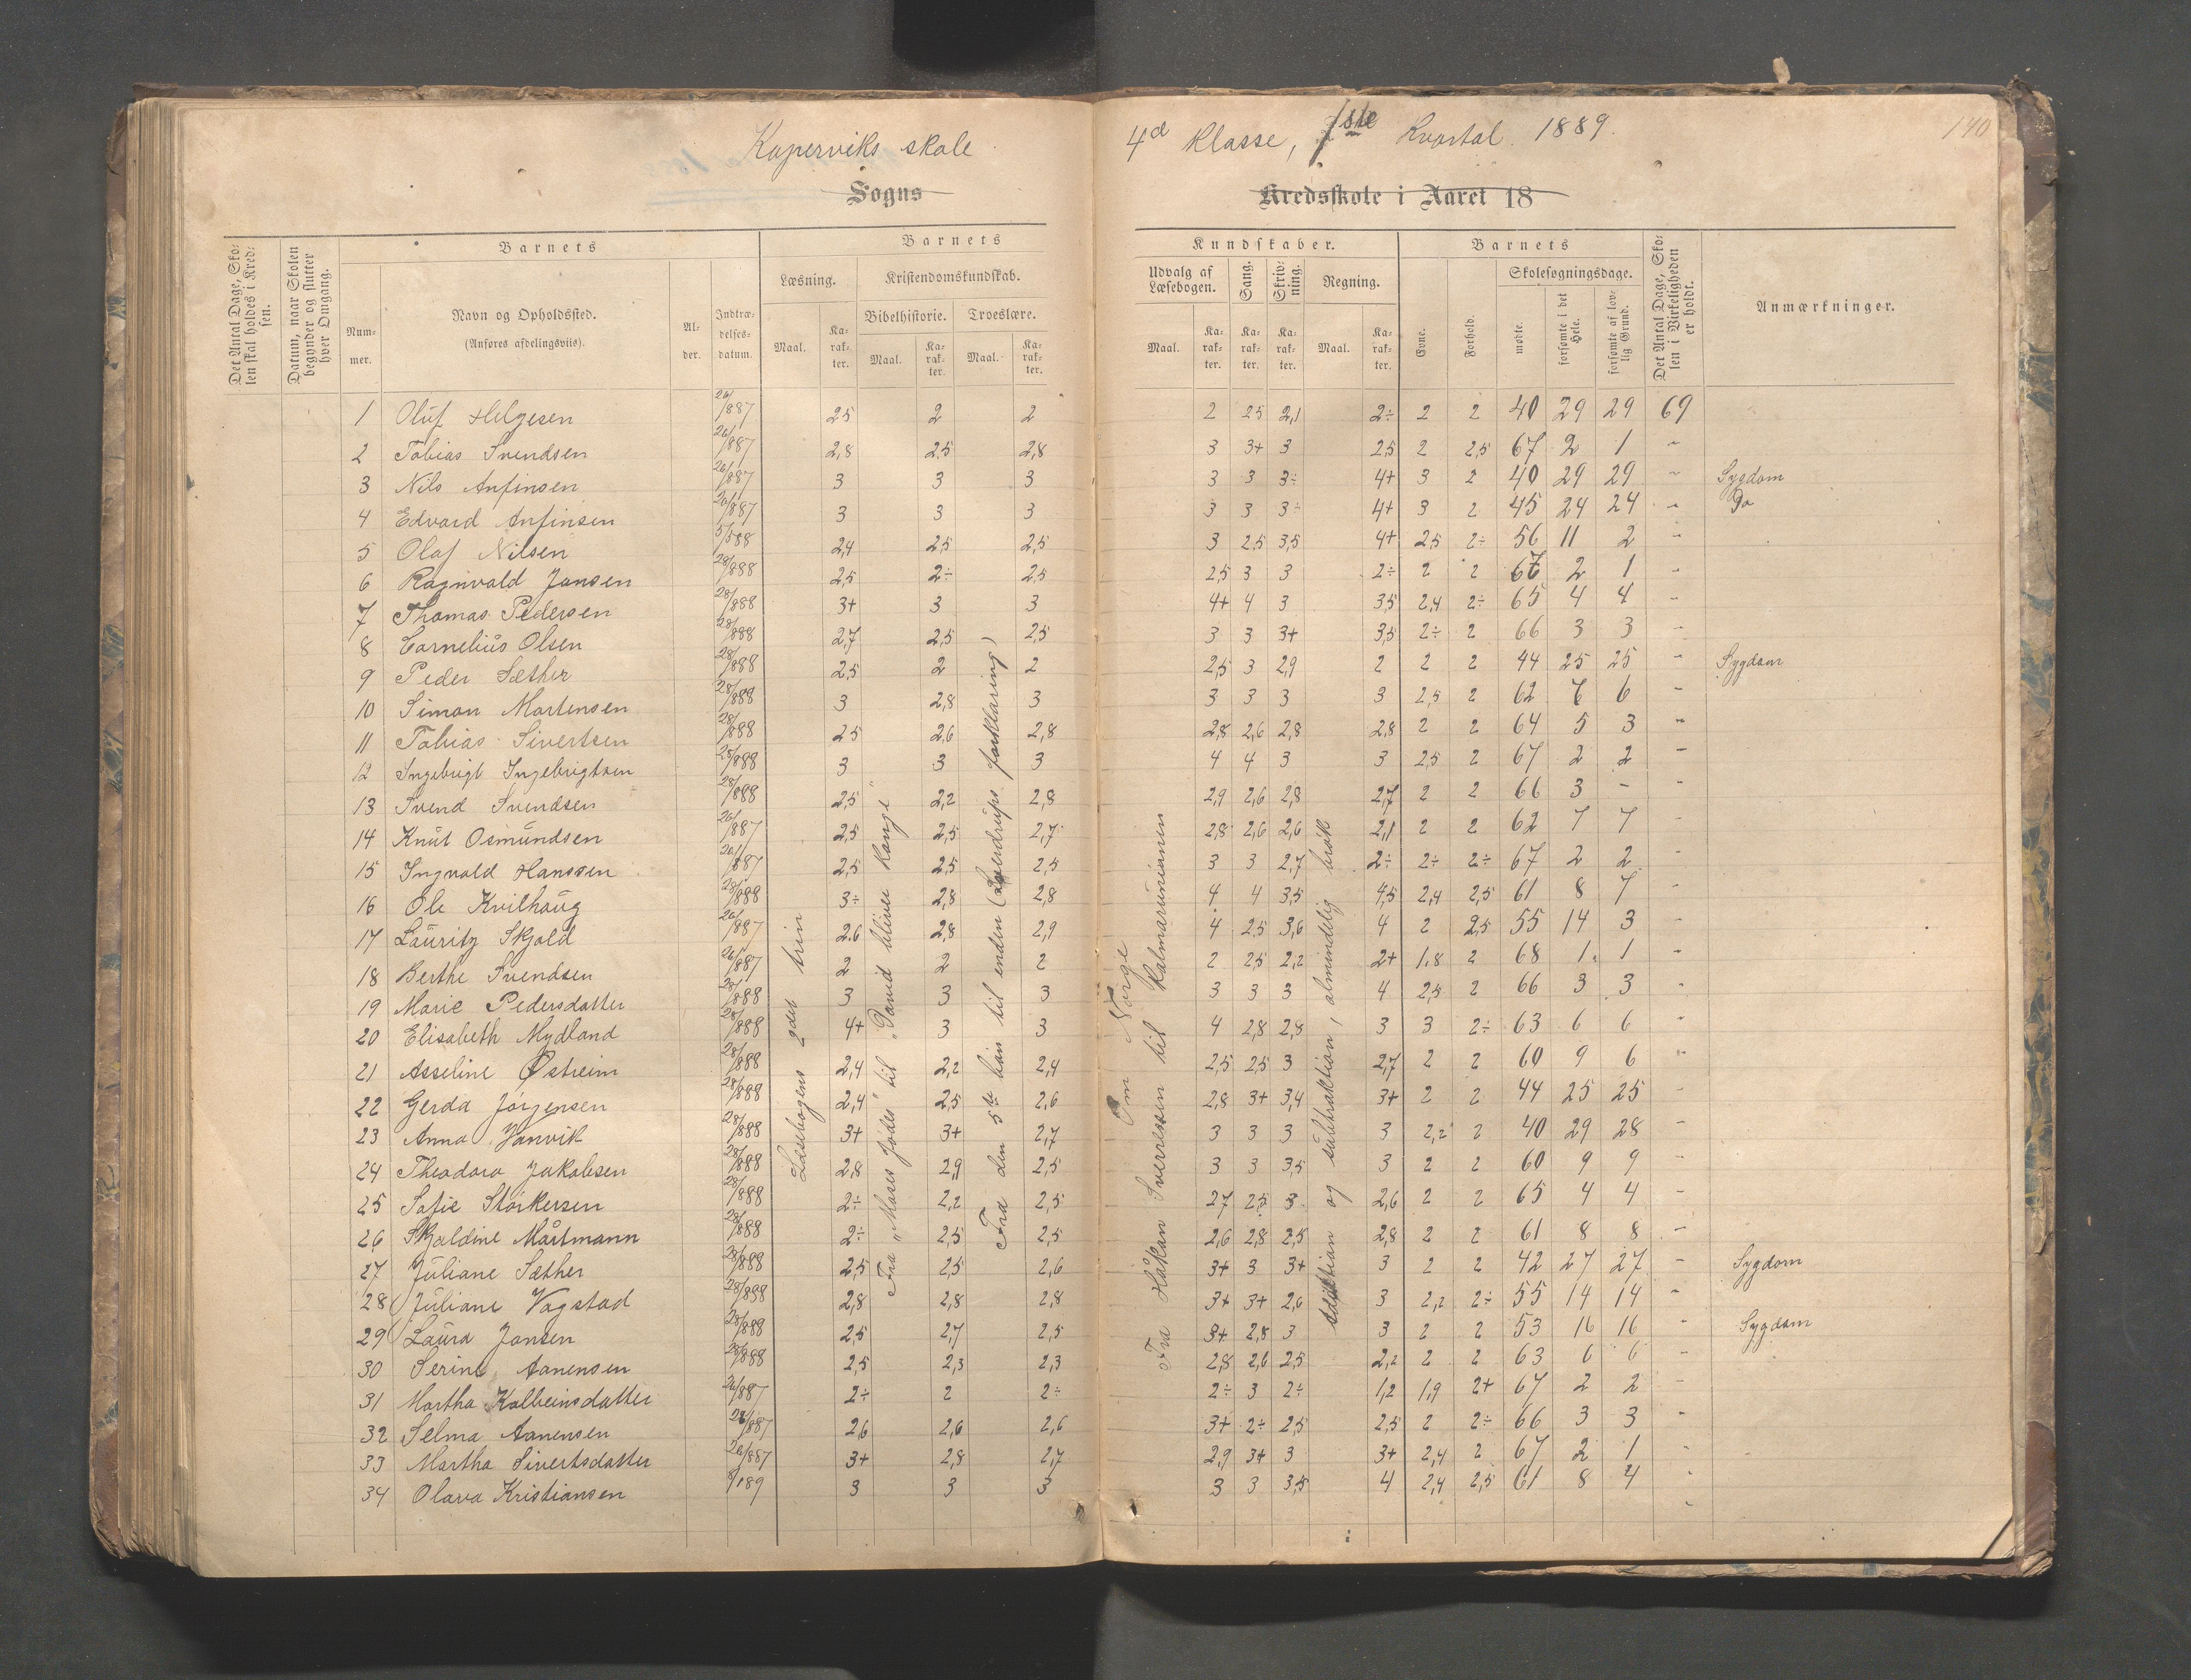 Kopperviks skole
4d Klasse, 1ste Kvartal 1889.
140
Sogns
Kredsskole i Aaret 18
Det Antal Dage, Skolen skal holdes i Kredsen.
Datum, naar Skolen begynder og slutter hver Omgang.
Barnets
Nummer.
Navn og Opholdssted.
(Anføres afdelingsviis).
Alder.
Indtrædelses-datum.
Barnets
Læsning.
Maal.
Karakter.
Kristendomskundskab.
Bibelhistorie.
Maal.
Karakter.
Troeslære.
Maal.
Karakter.
Kundskaber.
Udvalg af Læsebogen.
Maal.
Karakter.
Sang.
Karakter.
Skrivning.
Karakter.
Regning.
Maal.
Karakter.
Barnets
Evne.
Forhold.
Skolesøgningsdage.
mødte.
forsømte i det Hele.
forsømte af lovlig Grund.
Det Antal Dage, Skolen i Virkeligheden er holdt.
Anmærkninger.
1 Oluf Helgesen 26/1 887 2,5 2 2 2 2,5 2,1 2÷ 2 2 40 29 29 69
2 Tobias Svendsen 26/1 887 2,8 2,5 2,8 3 3+ 3 2,5 2 2,5 67 2 1 "
3 Nils Anfinsen 26/1 887 3 3 3 3 3 3÷ 4+ 3 2 40 29 29 " Sygdom
4 Edvard Anfinsen 26/1 887 3 3 3 3 3 3÷ 4+ 3 2 45 24 24 " Do
5 Olaf Nilsen 5/5 88 2,4 2,5 2,5 3 2,5 3,5 4+ 2,5 2÷ 56 11 2 "
6 Ragnvald Jansen 28/ 888 2,5 2÷ 2,5 2,5 3 3 2÷ 2 2 67 2 1 "
7 Thomas Pedersen 28/ 888 3+ 3 3 4+ 4 3 3,5 2,4 2÷ 65 4 4 "
8 Cornelius Olsen 28/ 888 2,7 2,5 2,5 3 3 3+ 3,5 2÷ 2 66 3 3 "
9 Peder Sæther 28/ 888 2,5 2 2 2,5 3 2,9 2 2 2 44 25 25 " Sygdom
10 Simon Martensen 28/ 888 3 2,8 3 3 3 3 3 2,5 2 62 7 6 "
11 Tobias Sivertsen 28/ 888 2,5 2,6 2,8 2,8 2,6 2,8 2,8 2 2 64 5 3 "
12 Ingebrigt Ingebrigtsen 28/ 888 3 3 3 4 4 3 3 2,5 2 67 2 2 "
13 Svend Svendsen 28/ 888 2,5 2,2 2,8 2,9 2,6 2,8 2,7 2 2 66 3 - "
14 Knut Osmundsen 26/1 887 2,5 2,5 2,7 2,8 2,6 2,6 2,1 2 2 62 7 7 "
15 Ingvald Hanssen 26/1 887 2,5 2,5 2,5 3 3 2,7 2÷ 2÷ 2÷ 67 2 2 "
16 Ole Kvilhaug 28/ 888 3÷ 2,8 2,8 4 4 3,5 4,5 2,4 2,5 61 8 7 "
17 Lauritz Skjold 26/ 887 2,6 2,8 2,9 4 2,5 3,6 4 2 2,5 55 14 3 "
18 Berthe Svendsen 26/ 887 2 2 2 2 2,5 2,2 2+ 1,8 2 68 1 1 "
19 Marie Pedersdatter 28/ 888 3 3 3 3 3 3 4 2,5 2 66 3 3 "
20 Elisabeth Mydland 28/ 888 4+ 3 3 4 2,8 2,8 3 3 2÷ 63 6 6 "
21 Asseline Østreim 28/ 888 2,4 2,2 2,4 2,5 2,5 3 2,7 2 2 60 9 6 "
22 Gerda Jørgensen 28/ 888 2,4 2,5 2,6 2,8 3+ 3,4 3+ 2 2 44 25 25 "
23 Anna Janvik 28/ 888 3+ 3+ 2,7 3 3 3 3 2,2 2 40 29 28 "
24 Theodora Jakobsen 28/ 888 2,8 2,9 2,5 3 3 3,5 3 2 2 60 9 9 "
25 Sofie Størkersen 28/ 888 2÷ 2,2 2,5 2,7 2,5 3 2,6 2 2 65 4 4 "
26 Skjoldine Mårtmann 28/ 888 2÷ 2,5 2,5 2,6 2,8 2,5 2,8 2 2 61 8 8 "
27 Juliane Sæther 28/ 888 2,5 2,5 2,6 3+ 3 3+ 3 2 2 42 27 27 " Sygdom
28 Juliane Vagstad 28/ 888 2,8 2,8 2,8 3+ 3+ 2,6 3 2,2 2÷ 55 14 14 "
29 Laura Jansen 28/ 888 2,5 2,7 2,5 3+ 2,8 3 3 2 2 53 16 16 Sygdom
30 Serine Aanensen 28/ 888 2,5 2,3 2,3 2,8 2,6 2,5 2,2 2 2 63 6 6 "
31 Martha Kolbeinsdatter 26/ 887 2÷ 2 2÷ 2÷ 3 2÷ 1,2 1,9 2+ 67 2 2 "
32 Selma Aanensen 26/ 887 2,6 2,6 2,6 3+ 2÷ 2,5 2,5 2 2÷ 66 3 3 "
33 Martha Sivertsdatter 26/ 887 3+ 2,8 2,7 2,9 3+ 3 3+ 2,4 2 67 2 1 "
34 Olava Kristiansen 8/1 89 3 3 3 3 3 3,5 4 2,4 2,5 61 8 4 "
Læsebogens 2det trin
Fra "Moses føder" til "David bliver Konge"
Fra den 5te bøn til enden (Sverdrups forklaring)
Om Norge
Fra Håkan Sverressen til Kalmarunionen
addition og subtraktion, almindelig brøk